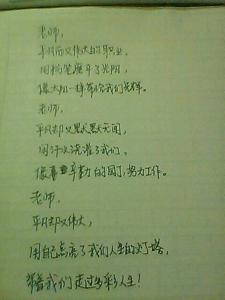 老师,
平凡而又伟大的职业,
用粉笔磨平了光阴,
像太阳一样带给我们光辉。
老师,
平凡却又默默无闻,
用汗水浇灌了我们,
像辛勤的园丁,努力工作。
老师,
平凡却又伟大,
用自己点亮了我们人生的灯塔,
带着我们走过多彩人生!